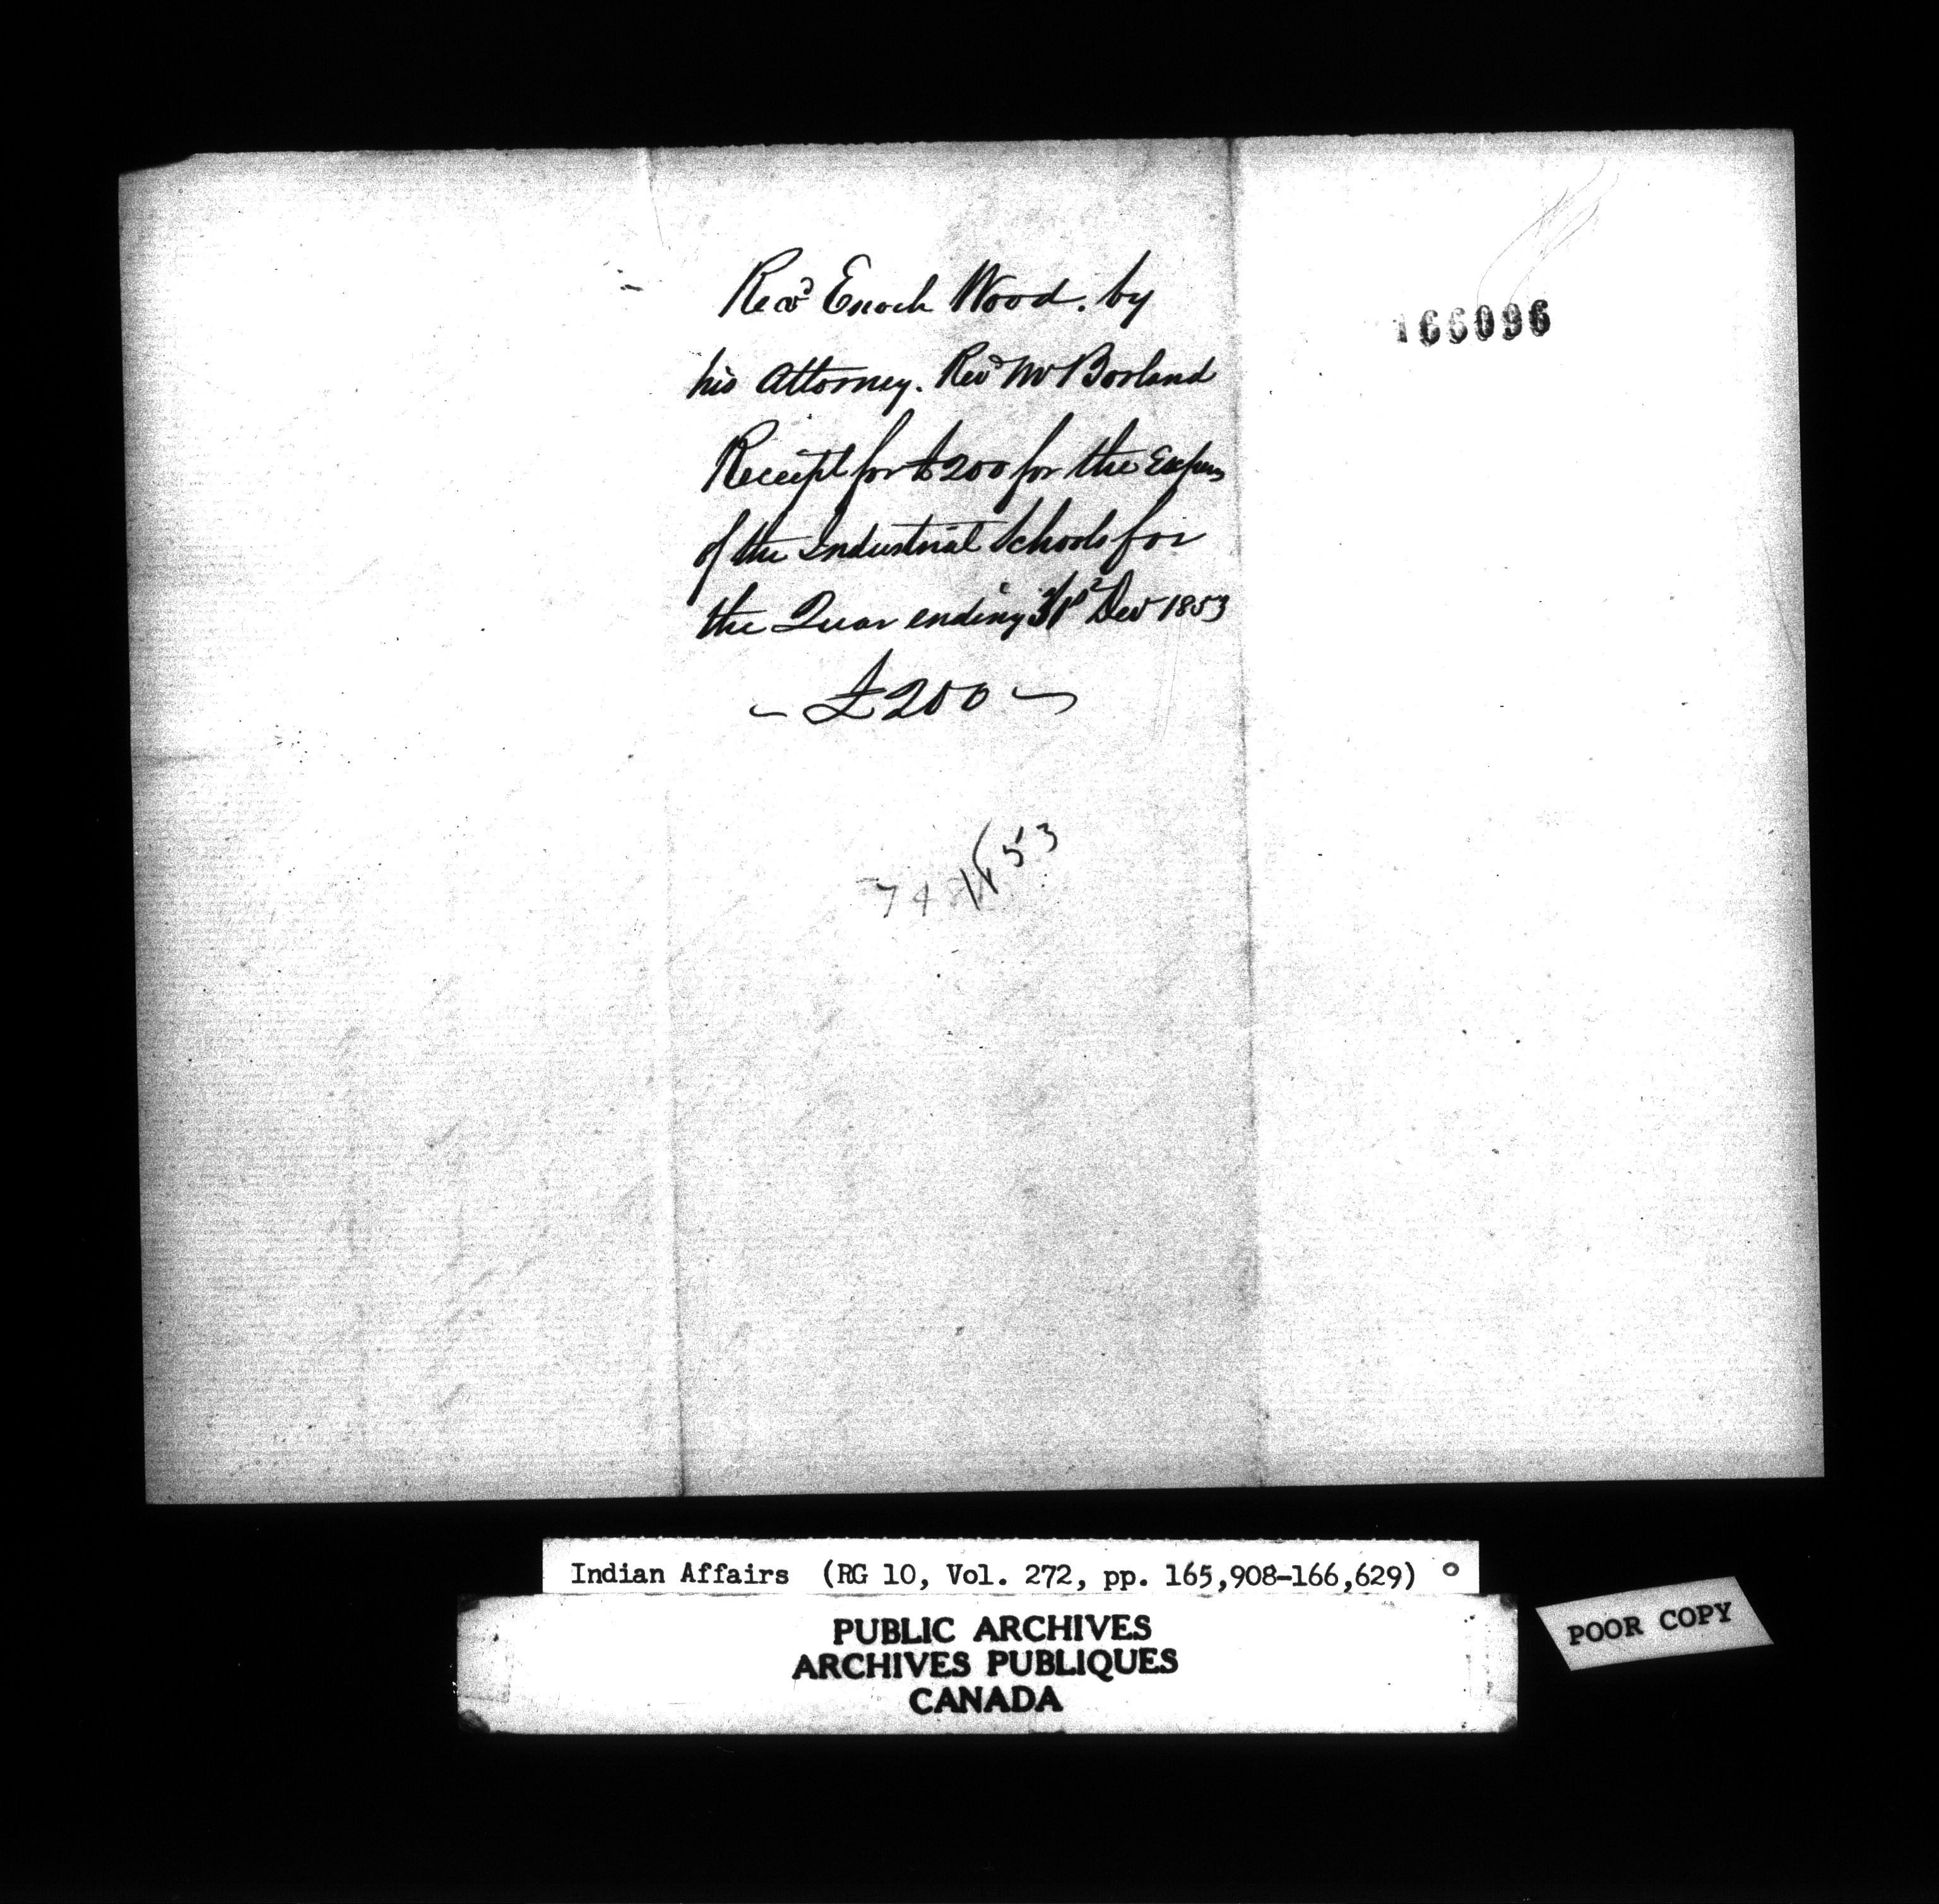 Revd Enoch Wood. by
his Attorney. Revd Mr Borland
Receipt for £200 for the Expens
of the Industrial Schools for
the Quar ending 31st Decr 1853
- £200 -
1853
74
166096
Indian Affairs (RG 10, Vol. 272, pp. 165,908-166,629)
PUBLIC ARCHIVES
ARCHIVES PUBLIQUES
CANADA
POOR COPY